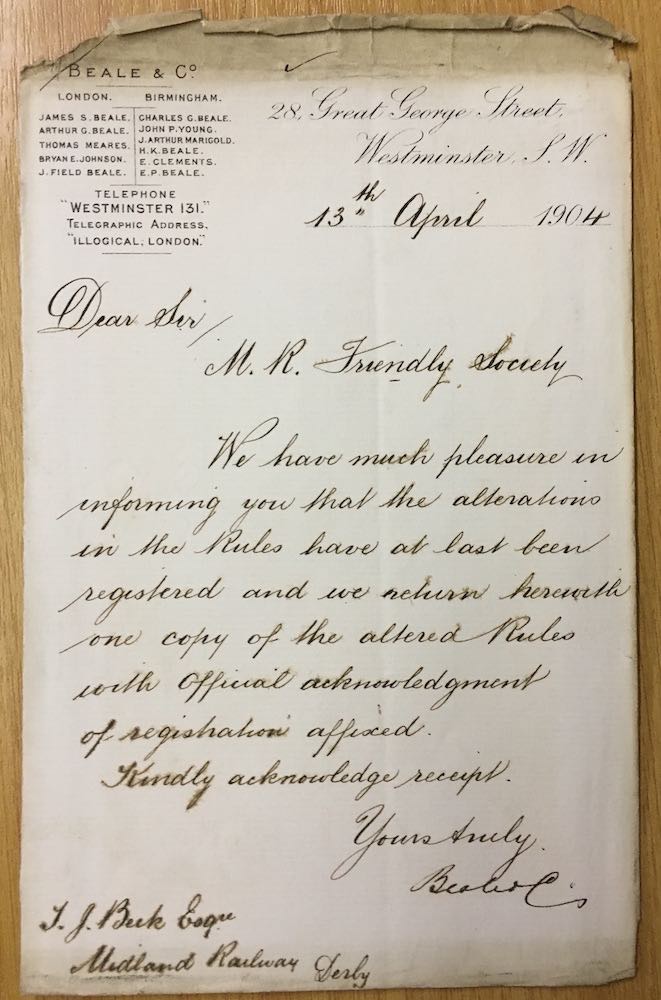 BEALE & Cº
LONDON. BIRMINGHAM.
JAMES S. BEALE. CHARLES G. BEALE.
ARTHUR G. BEALE. JOHN P. YOUNG.
THOMAS MEARES. J. ARTHUR MARIGOLD.
BRYAN E. JOHNSON. H. K. BEALE.
J. FIELD BEALE. E. CLEMENTS.
E. P. BEALE.
TELEPHONE
"WESTMINSTER 131."
TELEGRAPHIC ADDRESS,
"ILLOGICAL, LONDON."
28, Great George Street,
Westminster, S.W.
13th April 1904
Dear Sir
M. R. Friendly Society
We have much pleasure in
informing you that the alterations
in the Rules have at last been
registered and we return herewith
one copy of the altered Rules
with Official acknowledgment
of registration affixed.
Kindly acknowledge receipt.
Yours truly,
Beale & Co
J. Beck Esqre
Midland Railway Derby